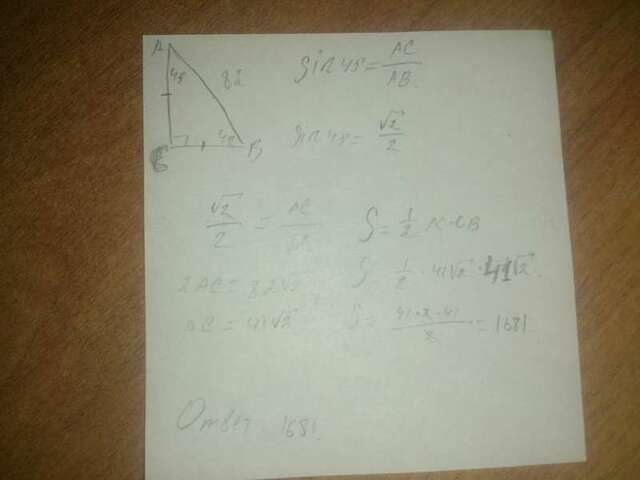 A
45
82
C
45
B
sin 45 = AC/AB
sin 45 = √2/2
√2/2 = AC/82
2AC = 82√2
AC = 41√2
S = 1/2 AC·CB
S = 1/2 · 41√2 · 41√2
S = 41·2·41/2 = 1681
Ответ 1681.